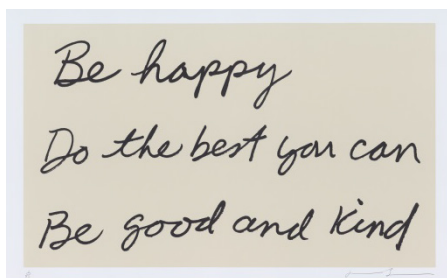 Be happy
Do the best you can
Be good and Kind